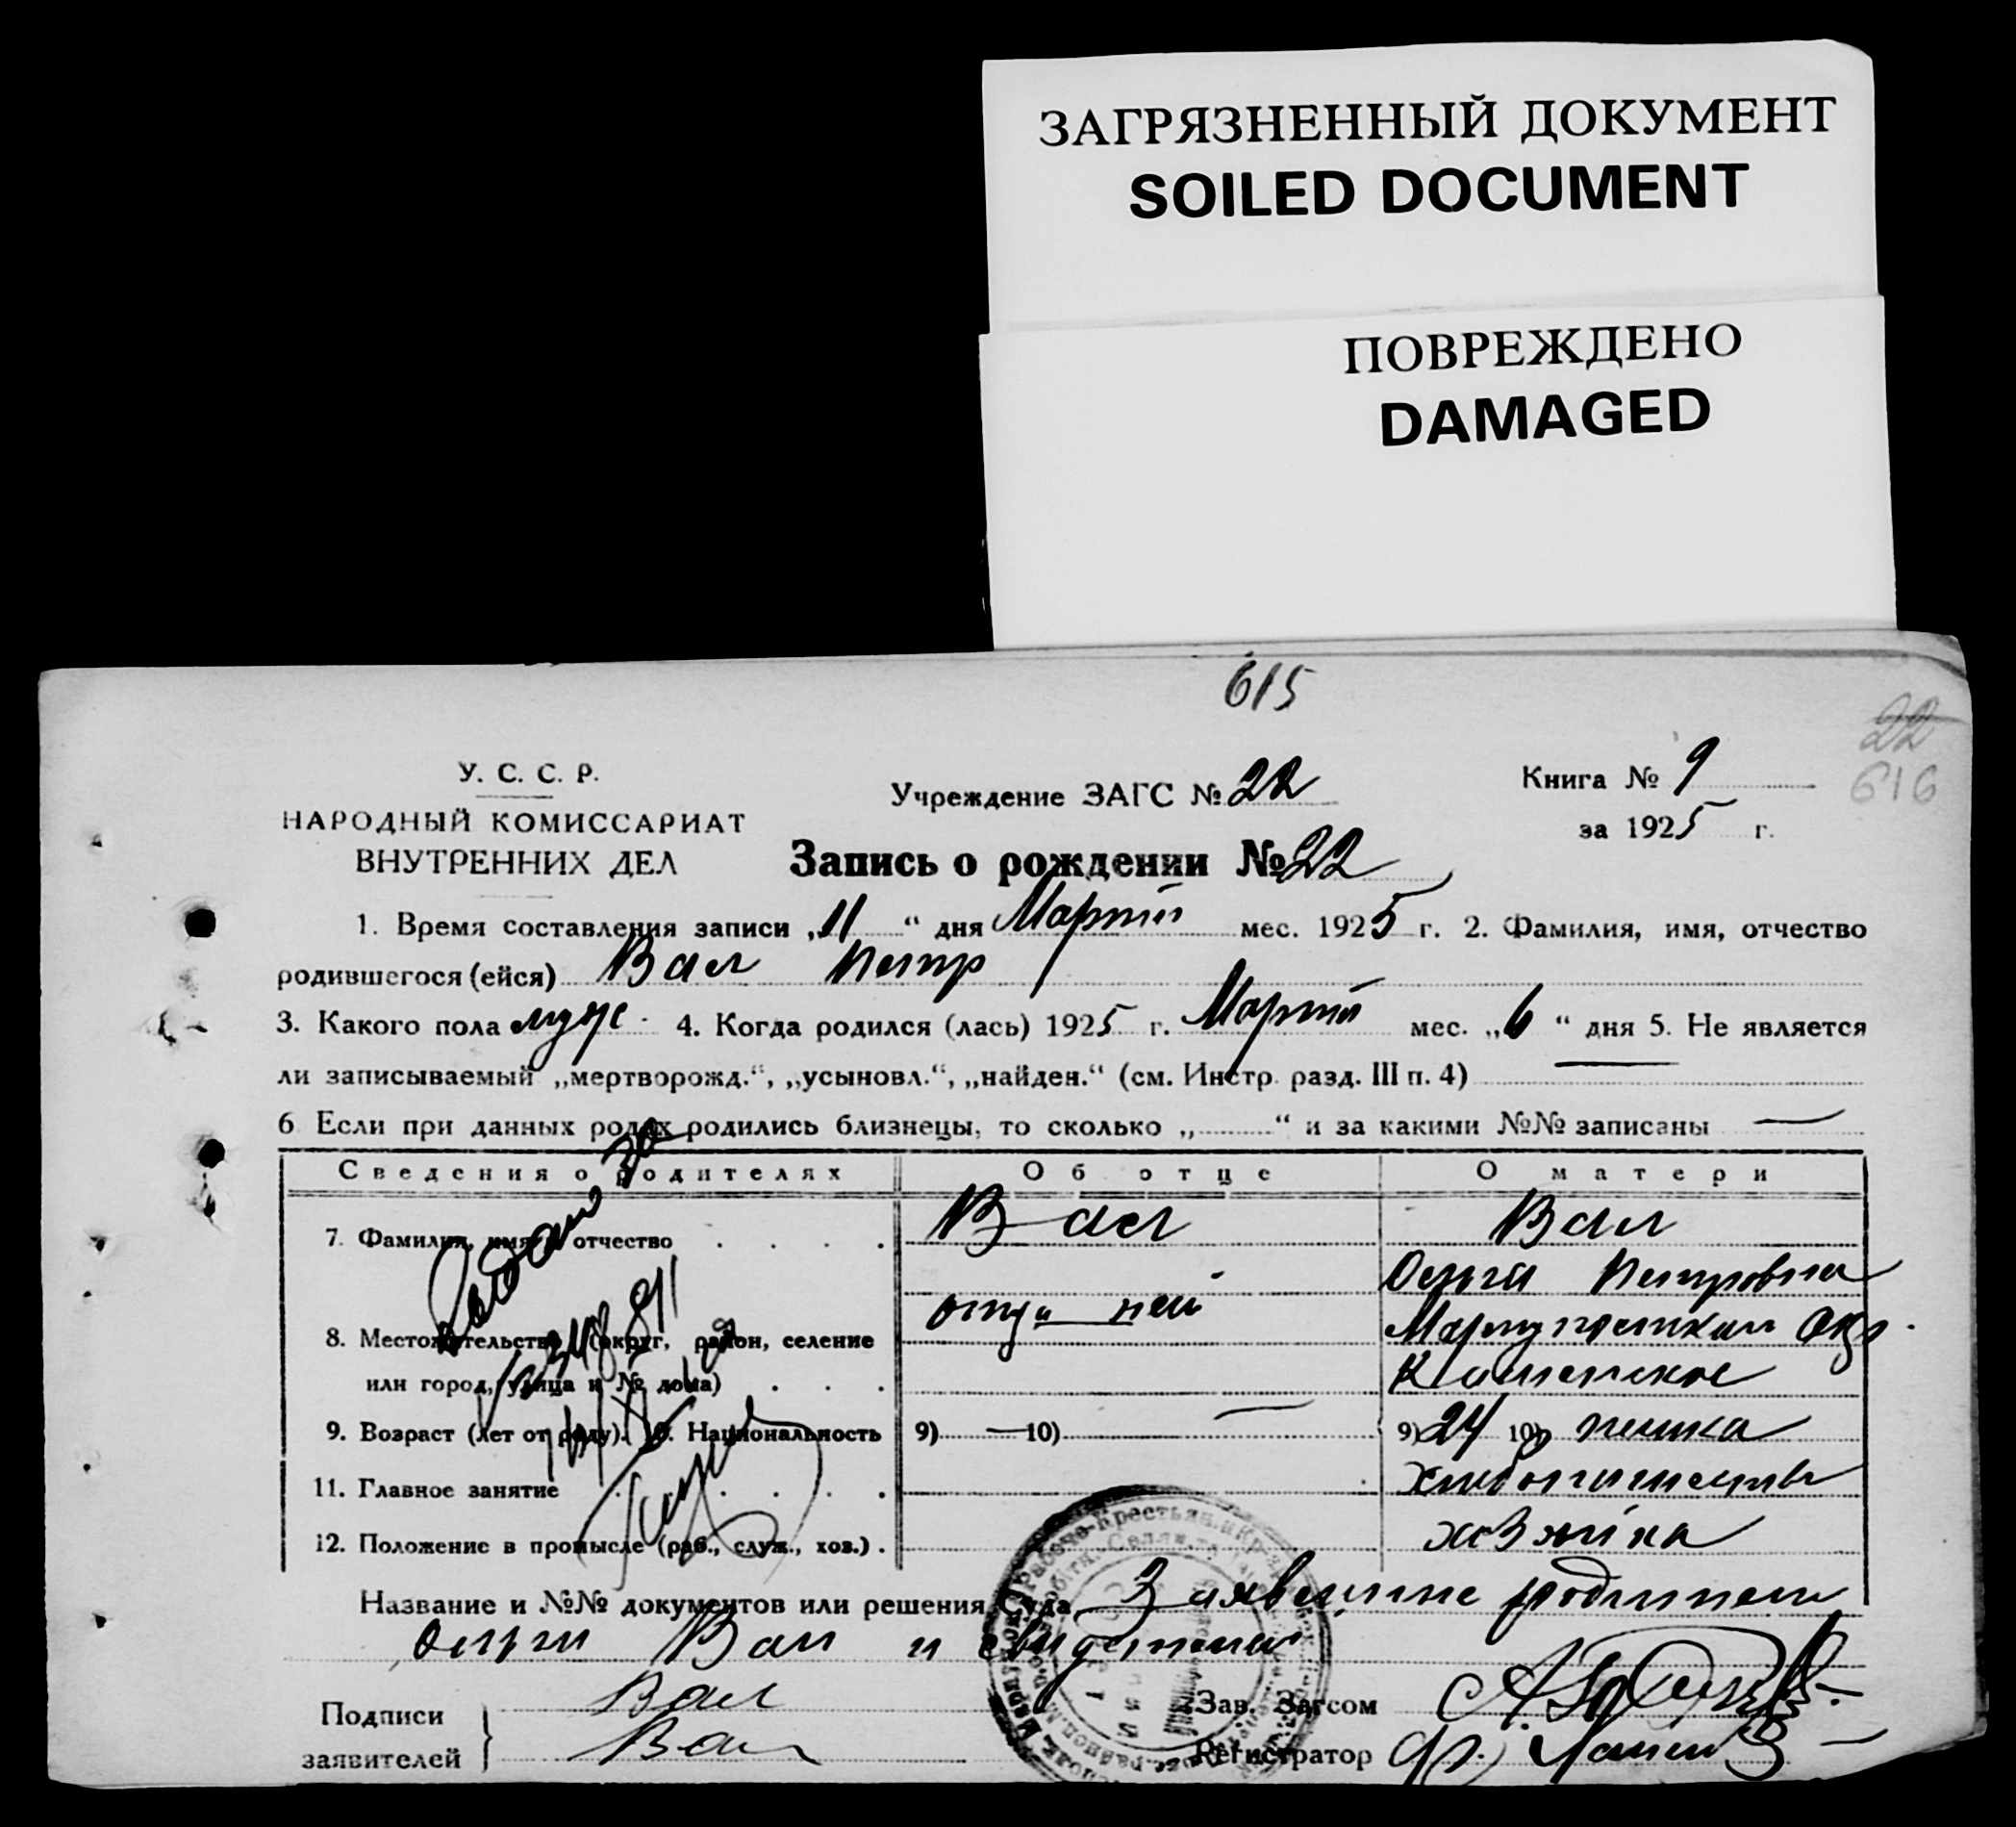 ЗАГРЯЗНЕННЫЙ ДОКУМЕНТ
SOILED DOCUMENT
ПОВРЕЖДЕНО
DAMAGED
615
22
616
У. С. С. Р.
НАРОДНЫЙ КОМИССАРИАТ
ВНУТРЕННИХ ДЕЛ
Учреждение ЗАГС № 22
Книга № 9
за 1925 г.
Запись о рождении № 22
1. Время составления записи „11“ дня Марта мес. 1925 г. 2. Фамилия, имя, отчество
родившегося (ейся) Вал Петр
3. Какого пола муж. 4. Когда родился (лась) 1925 г. Марта мес. „6“ дня 5. Не является
ли записываемый „мертворожд.“, „усыновл.“, „найден.“ (см. Инстр. разд. III п. 4) —
6 Если при данных родах родились близнецы, то сколько „ “ и за какими №№ записаны —
Сведения о родителях Об отце О матери
7. Фамилия, имя, отчество Вал Вал
Ольга Петровна
8. Местожительство (округ, район, селение
или город, улица и № дома)
9. Возраст (лет от роду). 10. Национальность 9) — 10) — 9) 24 10) немка
11. Главное занятие
12. Положение в промысле (раб., служ., хоз.)
Название и №№ документов или решения Суда Заявление
Ольги Вал и
Подписи
заявителей
Вал
Вал
Зав. Загсом
Регистратор